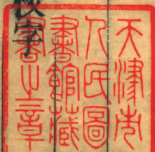 天津市
人民圖
書館藏
書之章
字